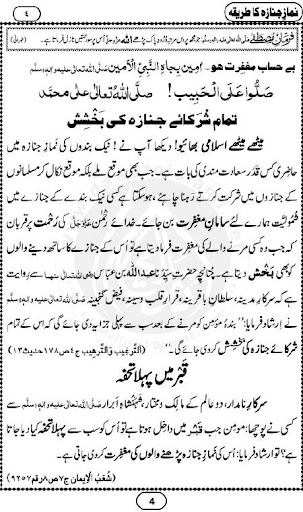 نمازِ جنازہ کا طریقہ
٤
فرمانِ مصطفٰے صلی اللہ تعالیٰ علیہ والہ وسلم: جو مجھ پر دس مرتبہ دُرُودِ پاک پڑھے اللہ عزوجل اُس پر سو رحمتیں نازِل فرماتا ہے۔ (طبرانی)
بے حساب مغفِرت ھو۔ اٰمین بِجاہِ النَّبِیِّ الْاَمین صلَّی اللہ تعالیٰ علیہ والہٖ وسلَّم
صَلُّوا عَلَی الْحَبِیب! صلَّی اللہُ تعالٰی علٰی محمَّد
تمام شُرَکائے جنازہ کی بخشِش
میٹھے میٹھے اسلامی بھائیو! دیکھا آپ نے! نیک بندوں کی نَمازِ جنازہ میں
حاضِری کس قَدَر سعادت مندی کی بات ہے۔ جب بھی موقع ملے بلکہ موقع نکال کر مسلمانوں
کے جنازوں میں شرکت کرتے رہنا چاہئے، ہو سکتا ہے کسی نیک بندے کے جنازے میں
شُمُولیَّت ہمارے لئے سامانِ مغفِرت بن جائے۔ خدائے رَحمٰن عَزَّوَجَلَّ کی رَحمت پر قربان
کہ جب وہ کسی مرنے والے کی مغفِرت فرما دیتا ہے تو اُس کے جنازے کا ساتھ دینے والوں
کو بھی بَخْش دیتا ہے۔ چُنانچِہ حضرتِ سیِّدُنا عبداللہ بن عبّاس رضی اللہ تعالیٰ عنہما سے روایت
ہے کہ سرکارِ مدینہ، سلطانِ باقرینہ، قرارِ قلب و سینہ، فیض گنجینہ صلَّی اللہ تعالیٰ علیہ والہٖ وسلَّم
نے ارشاد فرمایا: ’’بندۂ مؤمِن کو مرنے کے بعد سب سے پہلی جزا یہ دی جائے گی کہ اس کے تمام
شُرَکائے جنازہ کی بخشِش کر دی جائے گی۔‘‘ (اَلتَّرغِیب وَالتَّرھِیب ج٤ ص١٧٨ حدیث١٣)
قَبْر میں پہلا تحفہ
سرکارِ نامدار، دو عالم کے مالِک و مختار، شَہَنْشاہِ اَبرار صلَّی اللہ تعالیٰ علیہ والہٖ وسلَّم سے
کسی نے پوچھا: مؤمن جب قَبْر میں داخِل ہوتا ہے تو اُس کو سب سے پہلا تحفہ کیا دیا جاتا
ہے؟ تو ارشاد فرمایا: اُس کی نَمازِ جنازہ پڑھنے والوں کی مغفِرت کر دی جاتی ہے۔
(شُعَبُ الْاِیمان ج٧ ص٨ رقم ٩٢٥٧)
4